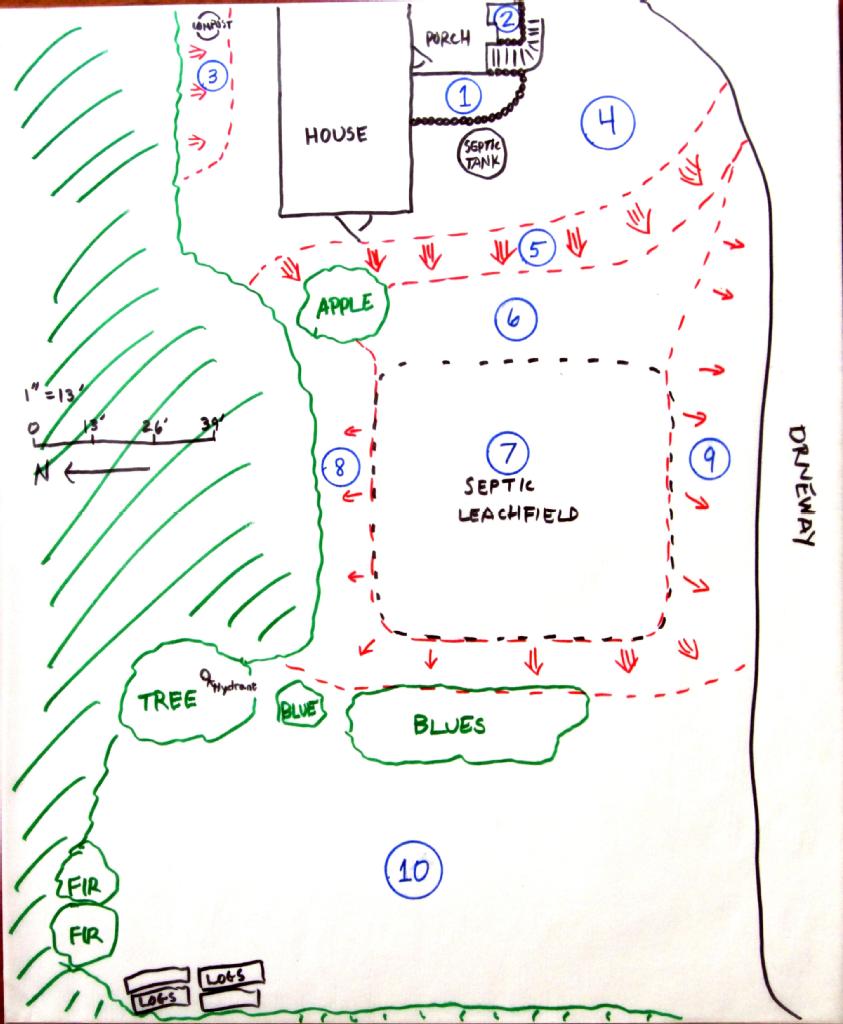 COMPOST
2
PORCH
3
1
4
HOUSE
SEPTIC
TANK
5
APPLE
6
1" = 13'
0 13' 26' 39'
N
7
8
9
SEPTIC
LEACHFIELD
DRIVEWAY
Hydrant
TREE
BLUE
BLUES
10
FIR
FIR
LOGS
LOGS